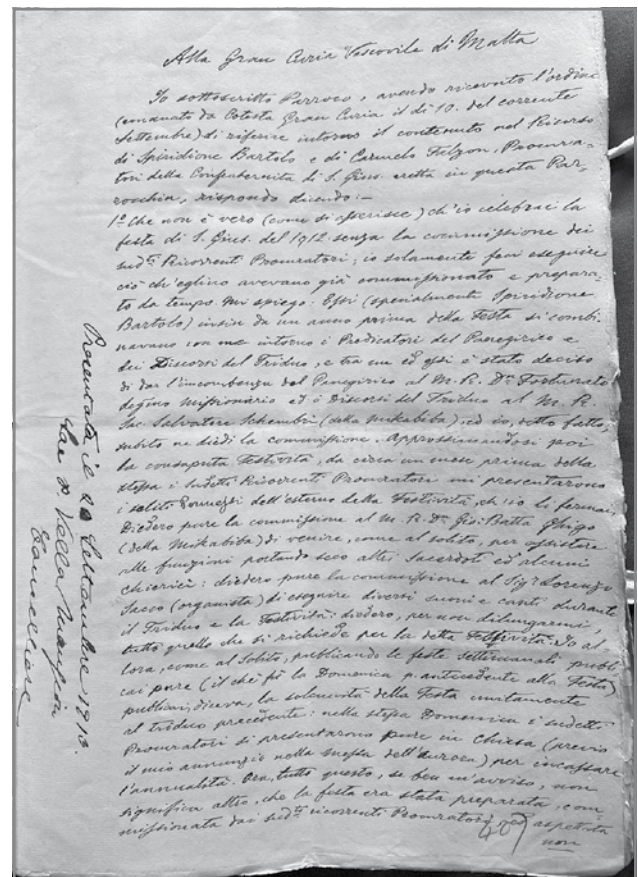 Alla Gran Curia Vescovile di Malta
Io sottoscritto Parroco, avendo ricevuto l'ordine
(emanato da Cotesta Gran Curia il dì 10. del corrente
Settembre) di riferire intorno il contenuto nel Ricorso
di Spiridione Bartolo e di Carmelo Felzon, Procura-
tori della Confraternita di S. Gius. eretta in questa Par-
rocchia, rispondo dicendo:—
1º Che non è vero (come si asserisce) ch'io celebrai la
festa di S. Gius. del 1912 senza la commissione dei
sudti Ricorrenti Procuratori; io solamente feci eseguire
ciò ch'eglino avevano già commissionato e prepara-
to da tempo. Mi spiego: Essi (specialmente Spiridione
Bartolo) insin da un anno prima della Festa si combi-
navano con me intorno i Predicatori del Panegirico e
dei Discorsi del Triduo, e tra me ed essi è stato deciso
di dar l'incombenza del Panegirico al M. R. Dn Fortunato
degno Missionario ed i Discorsi del Triduo al M. R.
Sac. Salvatore Schembri (della Mikabiba), ed io, sotto fatto,
subito ne diedi la commissione. Approssimandosi poi
la consaputa Festività, da circa un mese prima della
stessa i sudetti Ricorrenti Procuratori mi presentarono
i soliti dell'esterno della Festività, ch'io li fermai,
Diedero pure la commissione al M. R. Dn Gio: Batta Ghigo
(della Mikabiba) di venire, come al solito, per assistere
alle funzioni portando seco altri Sacerdoti ed alcuni
chierici: diedero pure la commissione al Sigr Lorenzo
Sacco (organista) di eseguire diversi suoni e canti durante
il Triduo e la Festività: diedero, per non dilungarmi,
tutto quello che si richiede per la detta Festività. Io al-
lora, come al solito, publicando le feste settimanali publi-
cai pure (il che fù la Domenica p. antecedente alla Festa)
publicai, diceva, la solennità della Festa unitamente
al triduo precedente: nella stessa Domenica i sudetti
Procuratori si presentarono pure in Chiesa (previo
il mio annunzio nella Messa dell'aurora) per incassare
l'annualità. Ora, tutto questo, se ben m'avviso, non
significa altro, che la festa era stata preparata, com-
missionata dai sudti ricorrenti Procuratori, ed aspettata
non
Presentata il Settembre 1913.
Sac. V. Vella Mangion
Cancelliere